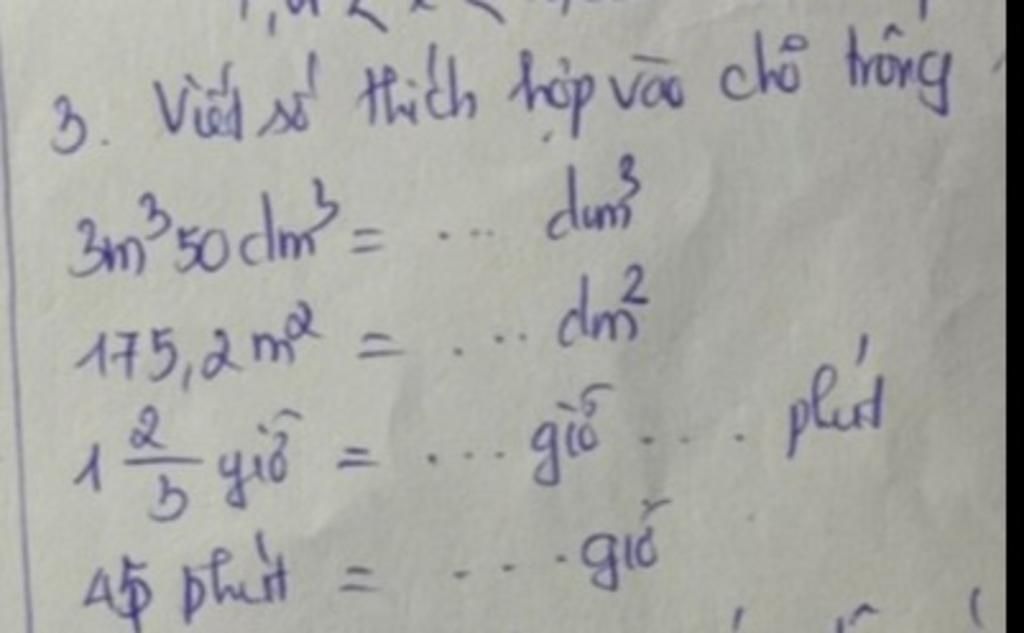 3. Viết số thích hợp vào chỗ trống
3m³50dm³ = ... dm³
175,2m² = ... dm²
1 2/3 giờ = ... giờ ... phút
45 phút = ... giờ